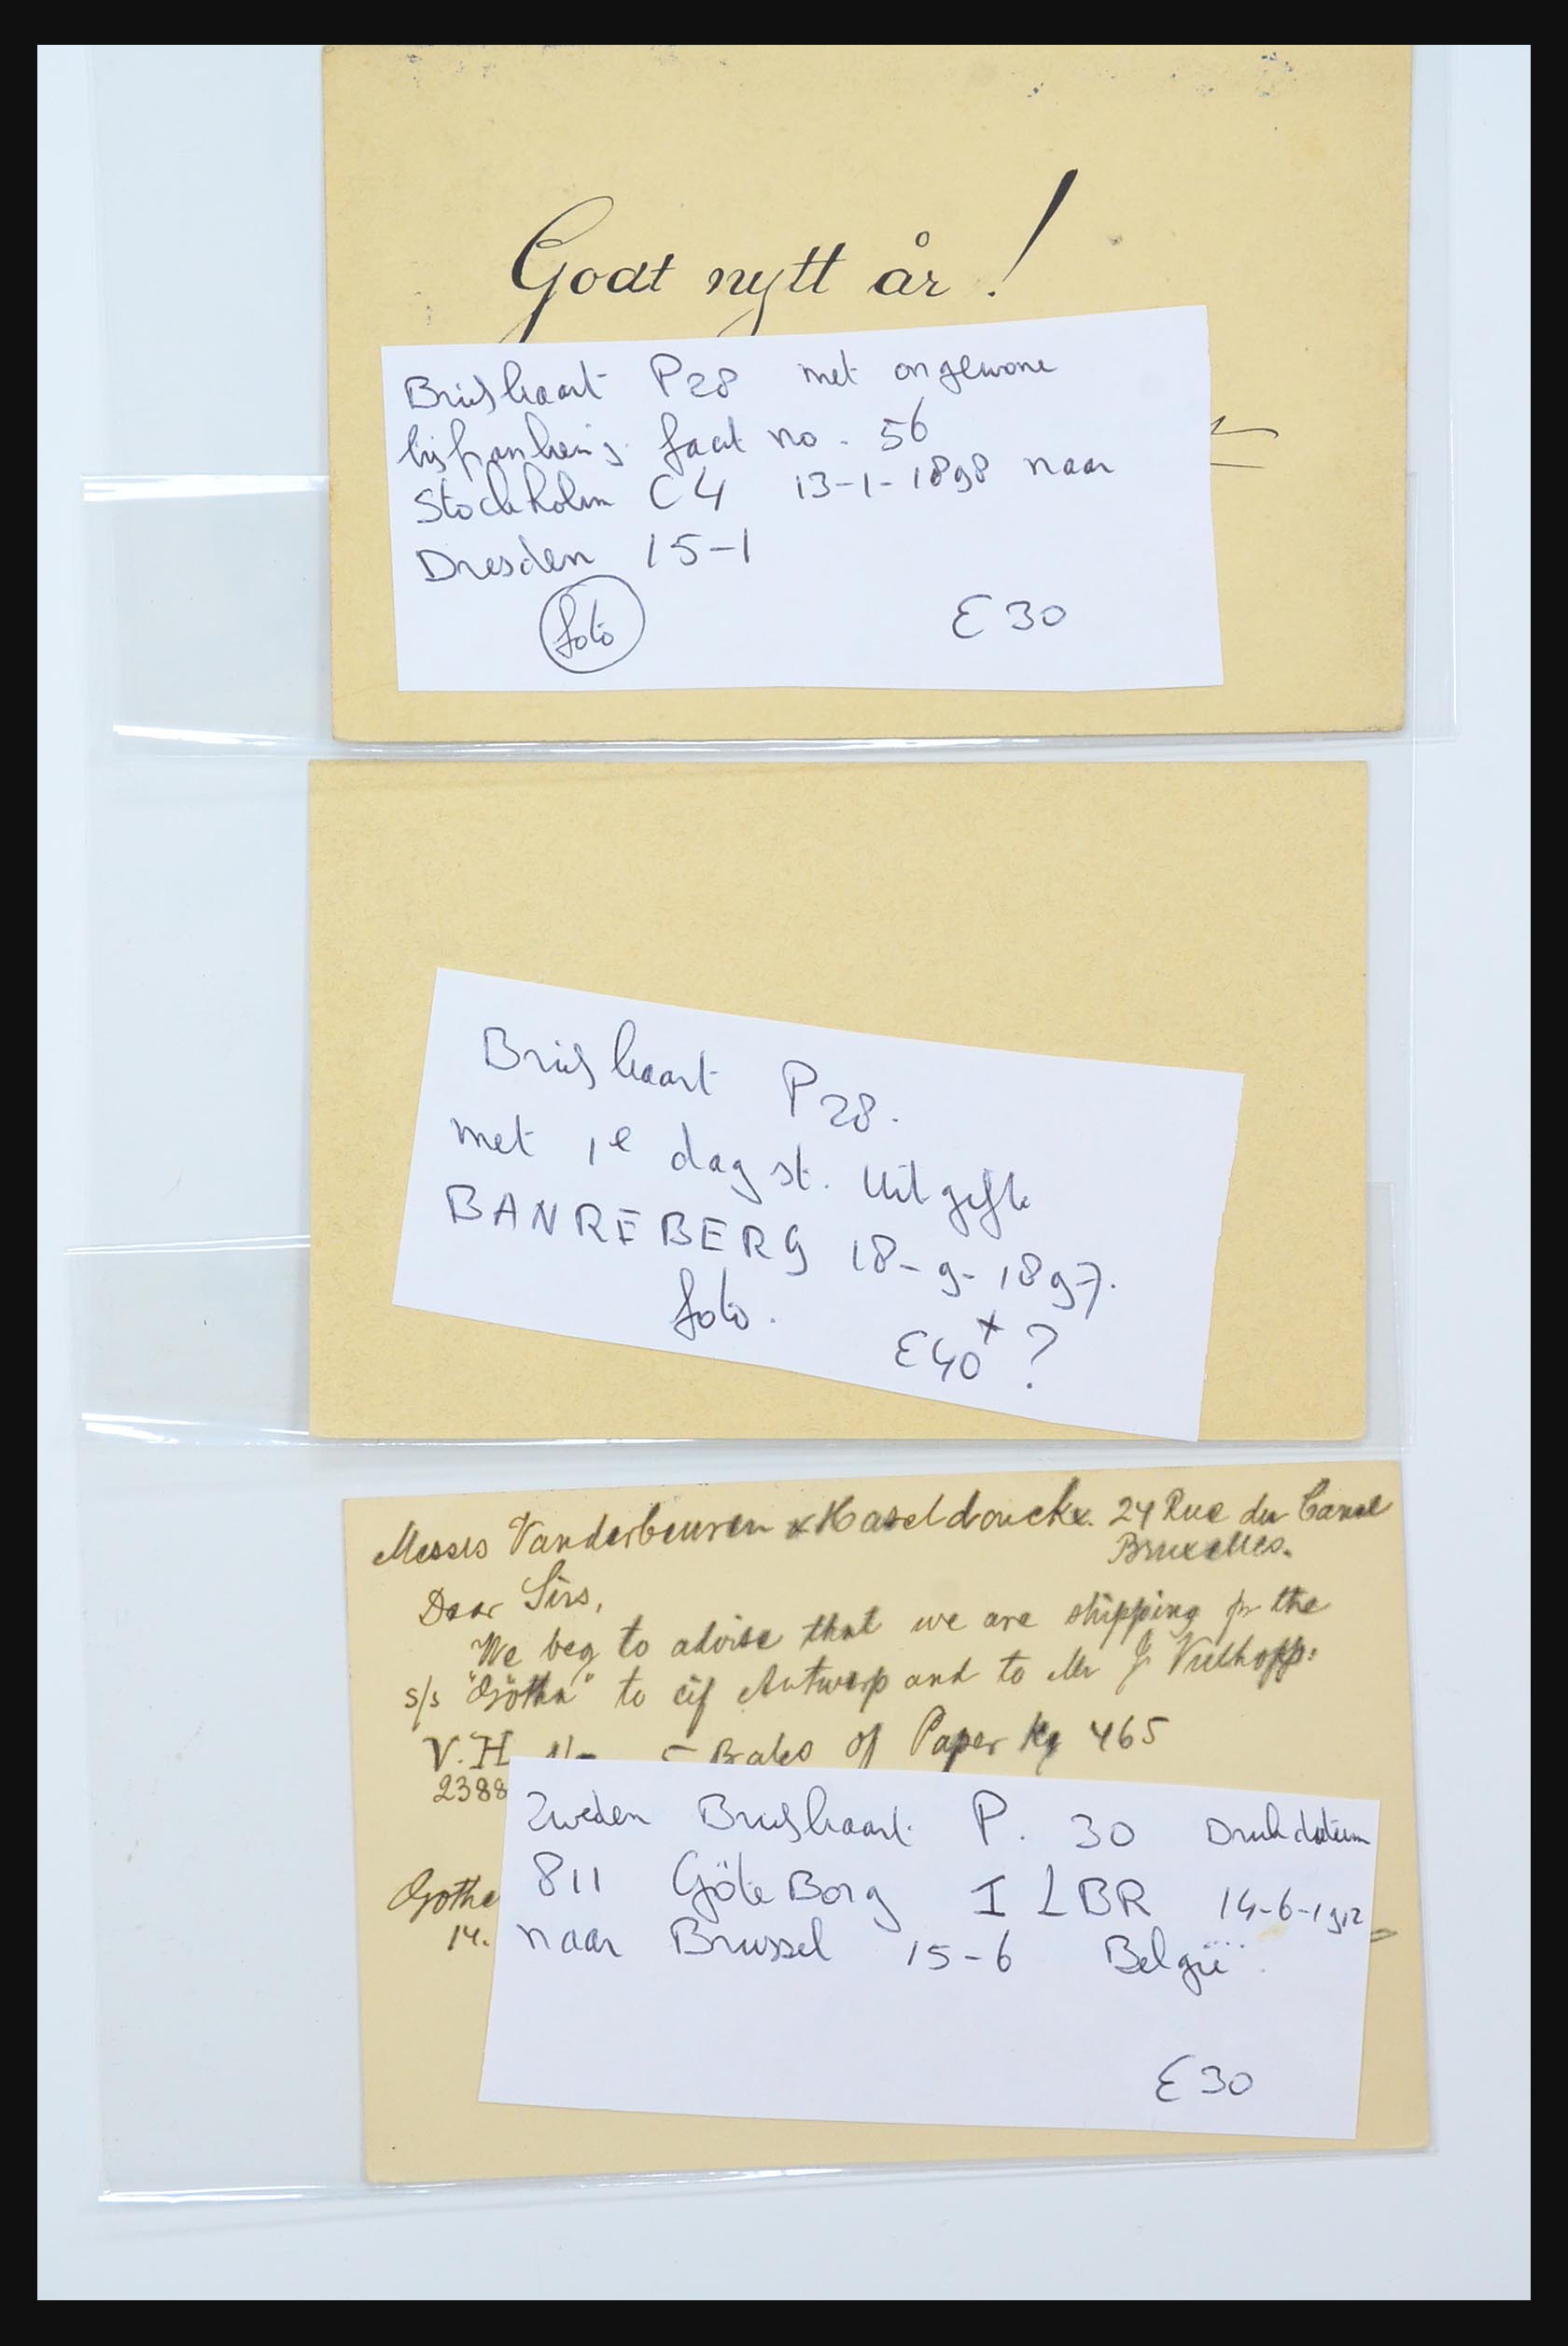 Godt nytt år !
Briefkaart P28 met ongewone
bijfrankering. facit no. 56
Stockholm C4 13-1-1898 naar
Dresden 15-1
foto
€30
Briefkaart P28.
met 1e dag st. Uitgifte
BANREBERG 18-9-1897.
foto. €40+ ?
Messrs Vanderbeuren & Haseldonckx. 24 Rue du Canal
Bruxelles.
Dear Sirs,
We beg to advise that we are shipping pr the
s/s "Götha" to cif Antwerp and to Mr J
V.H. 5 Bales of Paper Kg 465
2388
Zweden Briefkaart P. 30 Drukdatum
811 GöteBorg 1 LBR 14-6-1912
naar Brussel 15-6 België.
Gothe
14.
€30